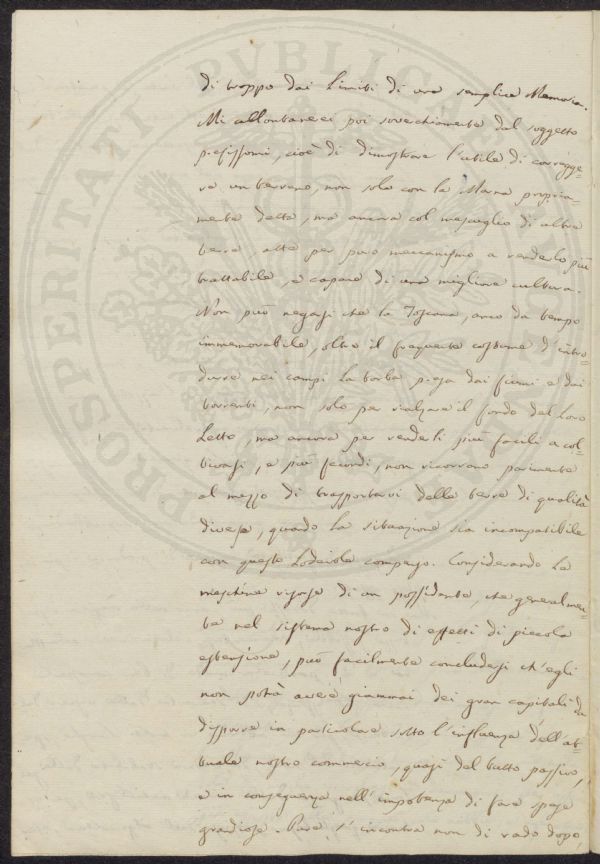 di troppo dai limiti di una semplice Memoria.
Mi allontanerei poi soverchiamente dal soggetto
prefissomi, cioè di dimostrare l'utile di corregge-
re un terreno, non solo con la Marna propria-
mente detta, ma ancora col mescuglio di altre
terre, atte per puro meccanismo a renderlo più
trattabile, e capace di una migliore cultura.
Non può negarsi che la Toscana, anco da tempo
immemorabile, oltre il frequente costume d'intro-
durre nei campi la torba presa dai fiumi e dai
torrenti, non solo per rialzare il fondo del Loro
Letto, ma ancora per renderli più facili a col-
tivarsi, e più fecondi, non ricorrano parimente
al mezzo di trasportarvi delle terre di qualità
diverse, quando la situazione sia incompatibile
con questo Lodevole compenso. Considerando la
meschina risorse di un possidente, che generalmen-
te nel sistema nostro di effetti di piccola
estensione, può facilmente concludersi ch'egli
non potrà avere giammai dei gran capitali da
disporre in particolare sotto l'influenza dell'at-
tuale nostro commercio, quasi del tutto passivo,
e in conseguenza nell'impotenza di fare spese
grandiose. Pure s'incontra non di rado dopo,
PROSPERITATI PUBLICAE